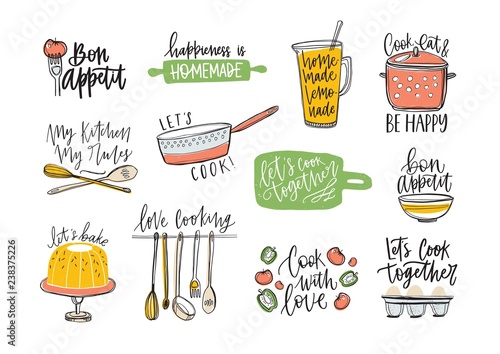 Bon
Appetit
happieness is
HOMEMADE
home
made
lemo
nade
Cook, eat &
BE HAPPY
My Kitchen
My Rules
LET'S
COOK!
let's cook
together
bon
appetit
let's bake
love cooking
Cook
with
love
Let's Cook
together
Adobe Stock | #238375226